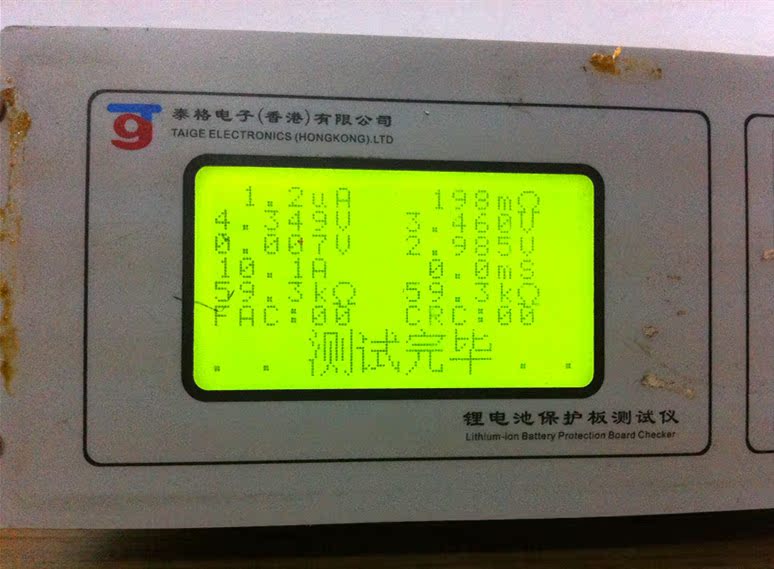 泰格电子(香港)有限公司
TAIGE ELECTRONICS (HONGKONG).LTD
1.2uA 198mΩ
4.349V 3.460V
0.007V 2.985V
10.1A 0.0mS
59.3kΩ 59.3kΩ
FAC:00 CRC:00
. . 测试完毕 . .
锂电池保护板测试仪
Lithium-ion Battery Protection Board Checker